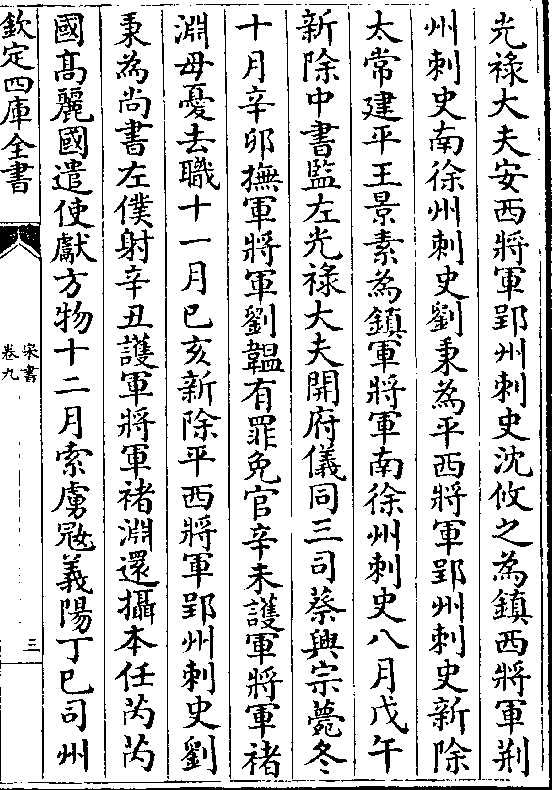 光祿大夫安西將軍郢州刺史沈攸之為鎮西將軍荆
州刺史南徐州刺史劉秉為平西將軍郢州刺史新除
太常建平王景素為鎮軍將軍南徐州刺史八月戊午
新除中書監左光祿大夫開府儀同三司蔡興宗薨冬
十月辛卯撫軍將軍劉韞有罪免官辛未護軍將軍褚
淵母憂去職十一月已亥新除平西將軍郢州刺史劉
秉為尚書左僕射辛丑護軍將軍褚淵還攝本任芮芮
國高麗國遣使獻方物十二月索虜冦義陽丁巳司州
欽定四庫全書
宋書
卷九
三